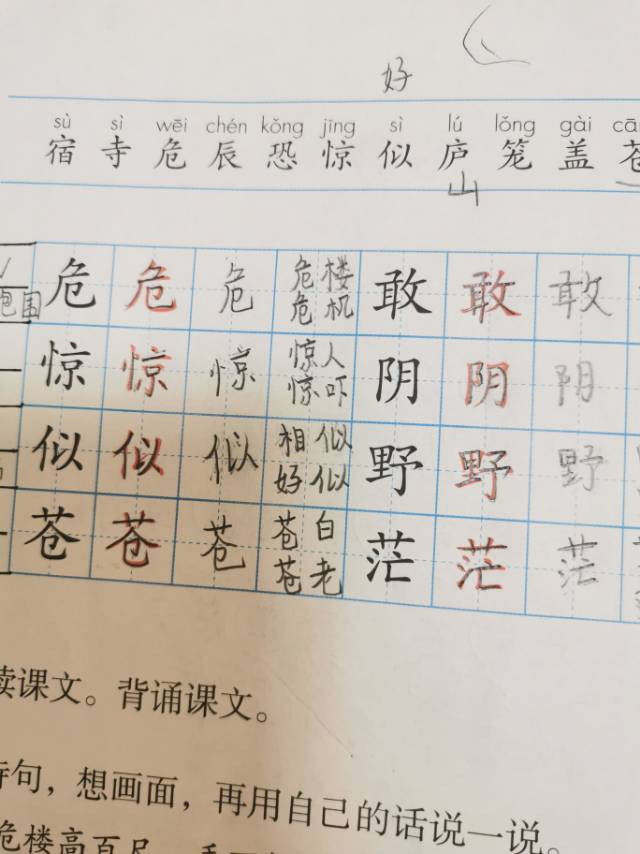 好
sù sì wēi chén kǒng jīng sì lú lǒng gài
宿 寺 危 辰 恐 惊 似 庐 笼 盖 苍
山
危 危 危 危楼 危机 敢 敢 敢
惊 惊 惊 惊人 惊吓 阴 阴 阴
似 似 似 相似 好似 野 野 野
苍 苍 苍 苍白 苍老 茫 茫 茫
读课文。背诵课文。
诗句，想画面，再用自己的话说一说。
危楼高百尺